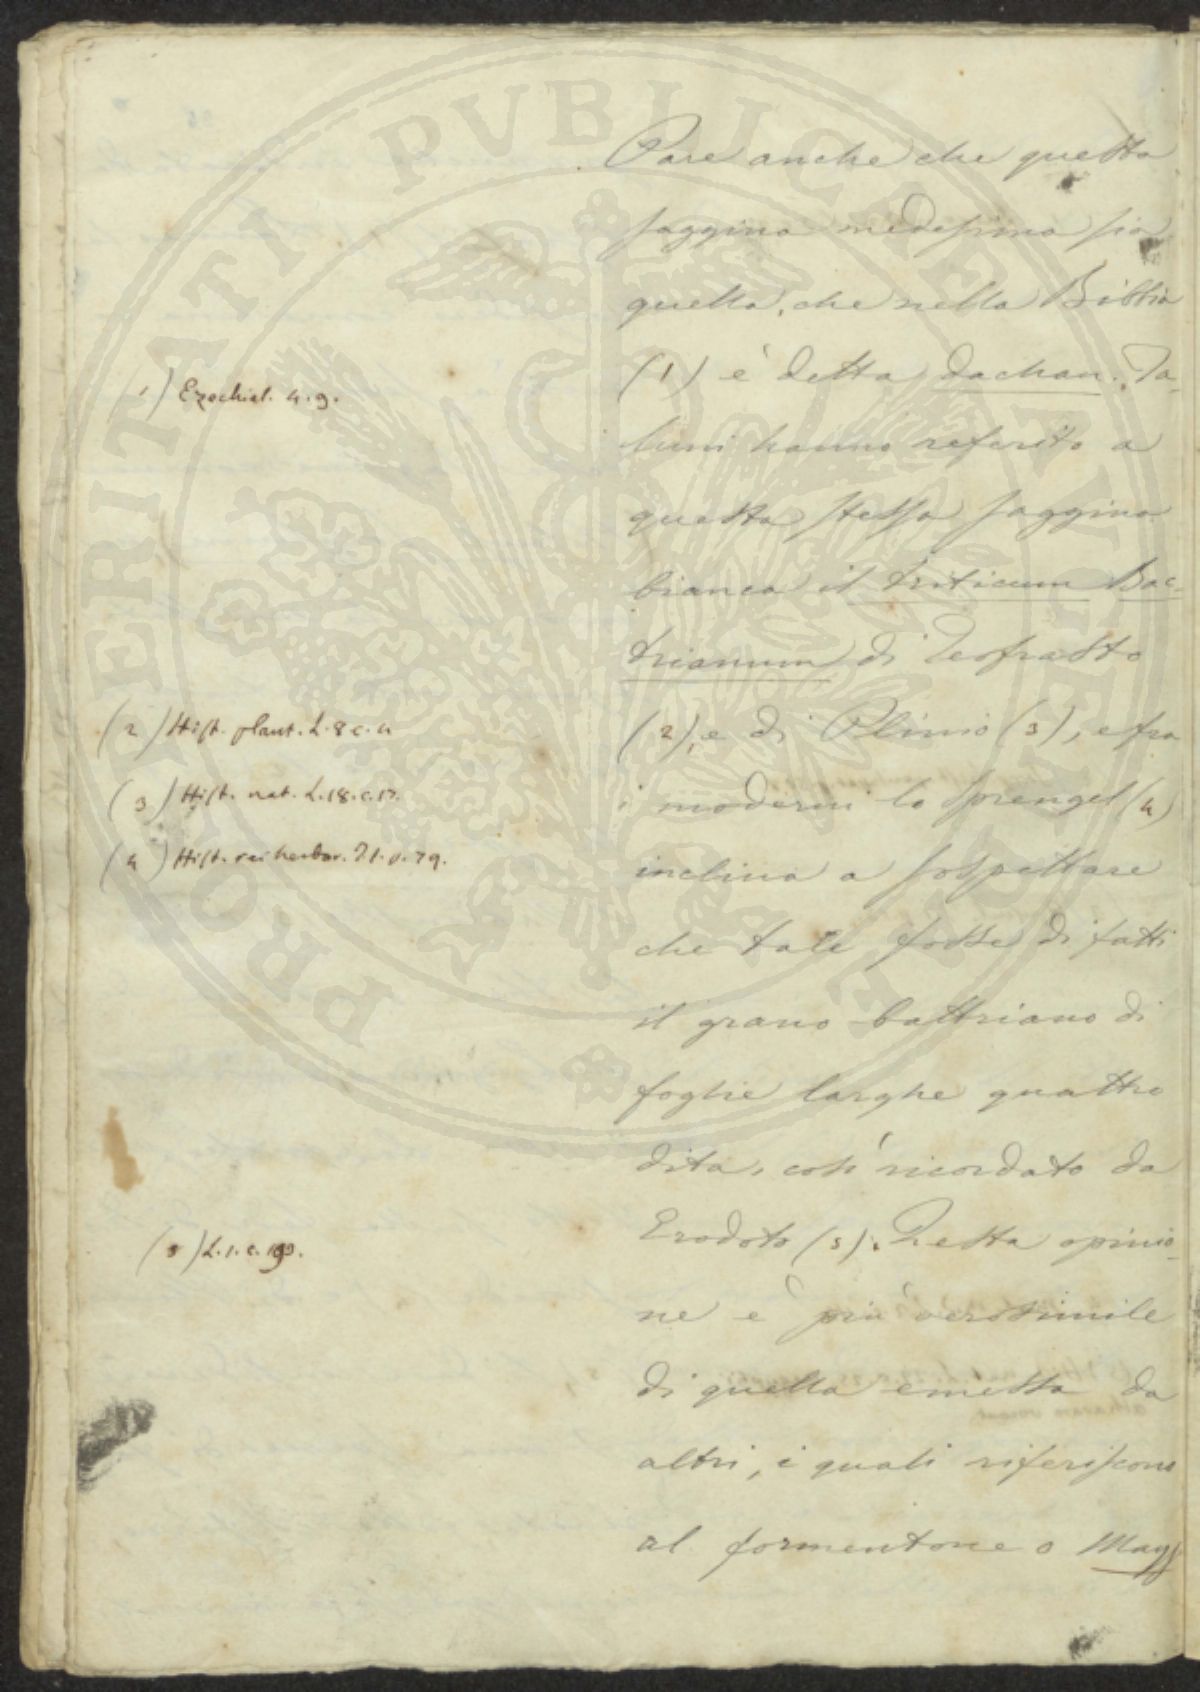 Pare anche che questa
saggina medesima sia
quella, che nella Bibbia
(1) è detta dachan. Ta-
luni hanno referito a
questa stessa saggina
bianca il triticum Bac-
trianum di Teofrasto
(2), e di Plinio (3), e fra
i moderni lo Sprengel (4)
inclina a sospettare
che tale fosse di fatti
il grano battriano di
foglie larghe quattro
dita, così ricordato da
Erodoto (5). Questa opinio-
ne è più verosimile
di quella emessa da
altri, i quali riferiscono
al formentone o Mays
1) Ezechiel. 4. 9.
(2) Hist. plant. L. 8 c. 4
(3) Hist. nat. L. 18. c. 17.
(4) Hist. rei herbar. T. 1. p. 79.
(5) L. 1. c. 193.
PROSPERITATI PUBLICAE AUGENDAE